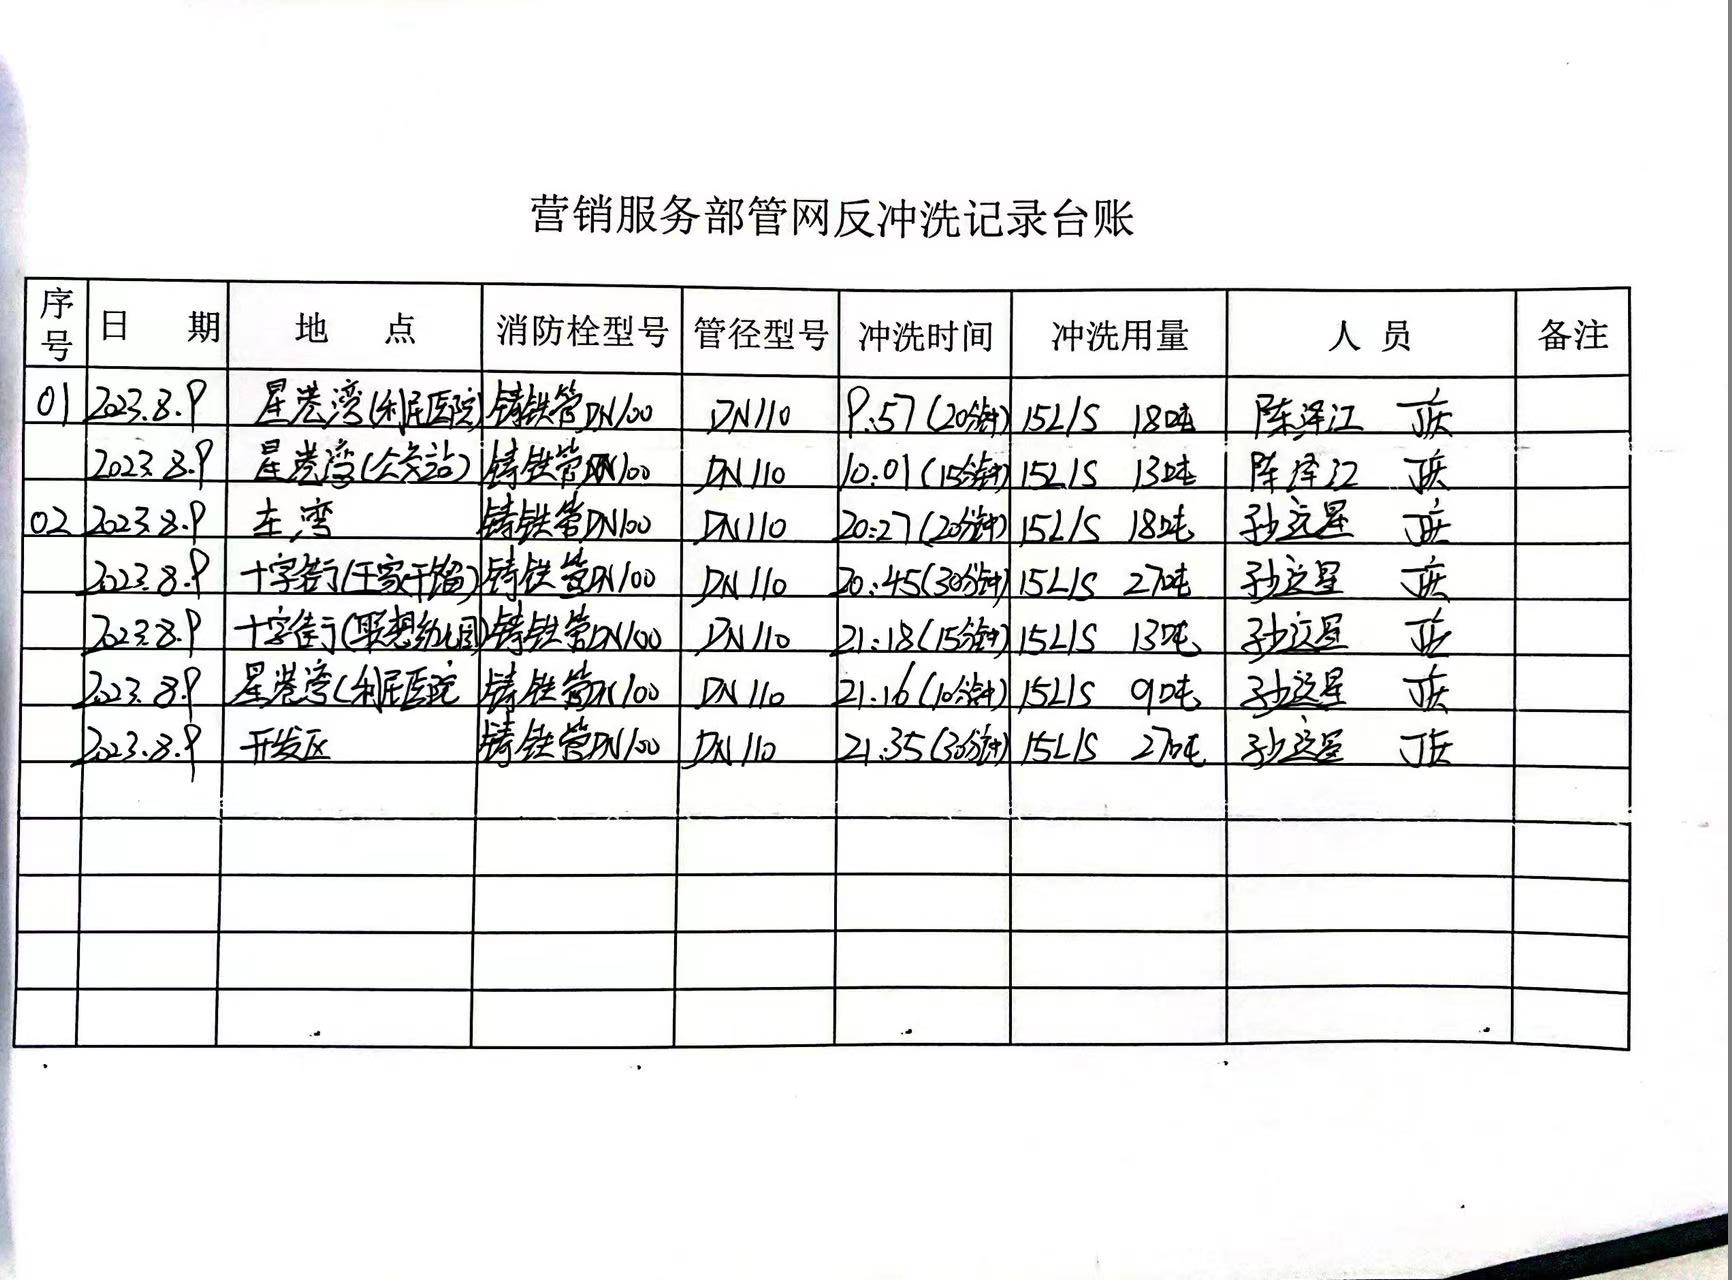 营销服务部管网反冲洗记录台账
序号 日 期 地 点 消防栓型号 管径型号 冲洗时间 冲洗用量 人 员 备注
01 2023.8.9 星港湾(利民医院) 铸铁管DN100 DN110 9:57(20分钟) 15L/S 18吨 陈泽江 丁庆
2023.8.9 星港湾(公交站) 铸铁管DN100 DN110 10:01(15分钟) 15L/S 13吨 陈泽江 丁庆
02 2023.8.9 左湾 铸铁管DN100 DN110 20:27(20分钟) 15L/S 18吨 孙远星 丁庆
2023.8.9 十字街(王家干馅) 铸铁管DN100 DN110 20:45(30分钟) 15L/S 27吨 孙远星 丁庆
2023.8.9 十字街(联想幼儿园) 铸铁管DN100 DN110 21:18(15分钟) 15L/S 13吨 孙远星 丁庆
2023.8.9 星港湾(利民医院 铸铁管DN100 DN110 21:16(10分钟) 15L/S 9吨 孙远星 丁庆
2023.8.9 开发区 铸铁管DN100 DN110 21:35(30分钟) 15L/S 27吨 孙远星 丁庆